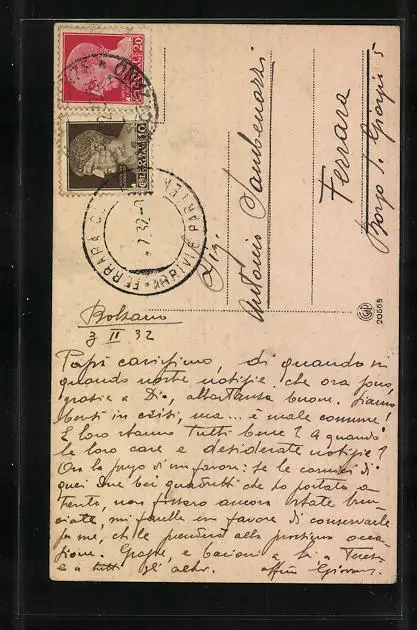 Bolzano
3 II 32
Papà carissimo, di quando in
quando nostre notizie, che ora sono,
grazie a Dio, abbastanza buone. Siamo
in crisi, ma... è male comune!
E loro stanno tutti bene? A quando
le loro care e desiderate notizie?
Ora la prego di un favore: se le cornici di
quei due bei quadretti che ho portato a
Trento, non fossero ancora state bru-
ciate, mi farebbe un favore di conservarle
per me, che le prenderò alla prossima occa-
sione. Grazie, e bacioni a lei a Teresa
e a tutti gli altri. aff.mo Giovanni
Sig.
Antonio Tambenazzi
Ferrara
Borgo S. Giorgio 5
20565
20
10
FERRARA
ARRIVI E PARTENZE